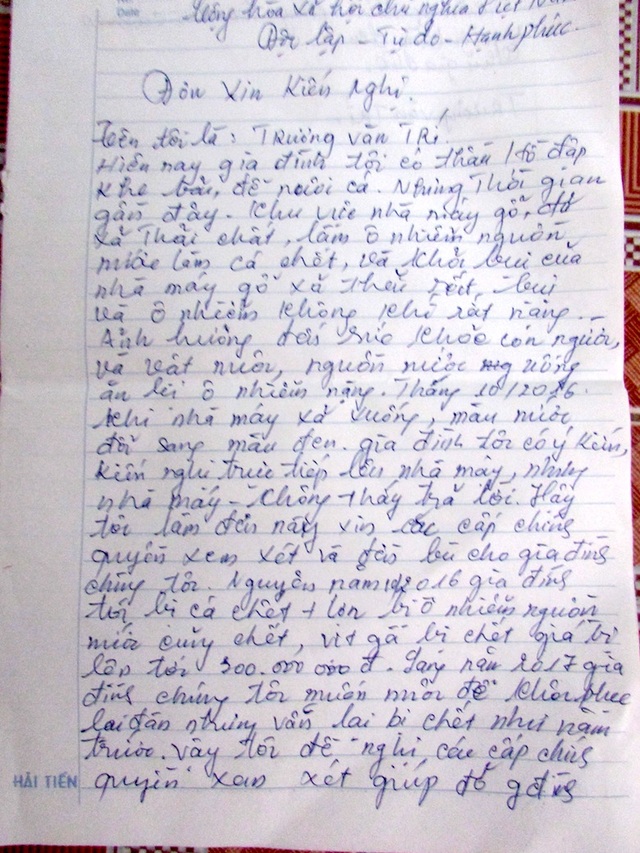 Cộng hòa xã hội chủ nghĩa Việt Nam
Độc lập - Tự do - Hạnh phúc.
Đơn xin kiến nghị.
Tên tôi là: Trương Văn Trí.
Hiện nay gia đình tôi có thầu hồ đập
khe bầu, để nuôi cá. Nhưng Thời gian
gần đây. Khu vực nhà máy gỗ, đã
xả Thải chất, làm ô nhiễm nguồn
nước làm cá chết, và khói bụi của
nhà máy gỗ xả thải rất, bụi
và ô nhiễm không khí rất nặng.
Ảnh hưởng đến sức khỏe con người,
và vật nuôi, nguồn nước uống
ăn lại ô nhiễm nặng. Tháng 10/2016.
khi nhà máy xả xuống, màu nước
đổi sang màu đen. gia đình tôi có ý kiến,
kiến nghị trực tiếp lên nhà máy, nhưng
nhà máy - không thấy trả lời. Nay
tôi làm đơn này xin các cấp chính
quyền xem xét và đền bù cho gia đình
chúng tôi. Nguyên năm 2016 gia đình
tôi bị cá chết + lợn bị ô nhiễm nguồn
nước cũng chết, vịt gà bị chết giá trị
lên tới 300.000 000 đ. Sang năm 2017 gia
đình chúng tôi muốn nuôi để khôi phục
lại đàn nhưng vẫn lại bị chết như năm
trước. Vậy tôi đề nghị các cấp chính
HẢI TIẾN quyền xem xét giúp đỡ g đình